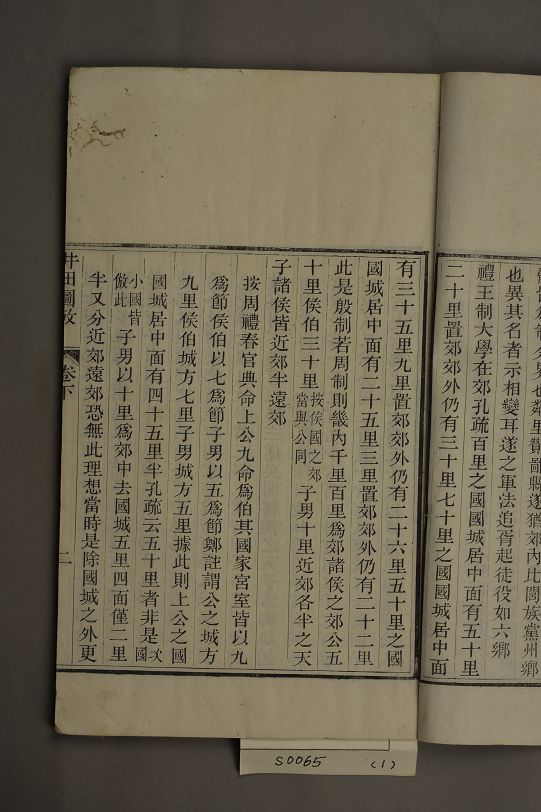 也異其名者示相變耳遂之軍法追胥起徒役如六鄉
禮王制大學在郊孔疏百里之國國城居中面有五十里
二十里置郊郊外仍有三十里七十里之國國城居中面
有三十五里九里置郊郊外仍有二十六里五十里之國
國城居中面有二十五里三里置郊郊外仍有二十二里
此是殷制若周制則畿內千里百里爲郊諸侯之郊公五
十里侯伯三十里按侯國之郊當與公同子男十里近郊各半之天
子諸侯皆近郊半遠郊
按周禮春官典命上公九命爲伯其國家宮室皆以九
爲節侯伯以七爲節子男以五爲節鄭註謂公之城方
九里侯伯城方七里子男城方五里據此則上公之國
國城居中面有四十五里半孔疏云五十里者非是次國
小國皆倣此子男以十里爲郊中去國城五里四面僅二里
半又分近郊遠郊恐無此理想當時是除國城之外更
井田圖攷
卷下
二
S0065 (1)